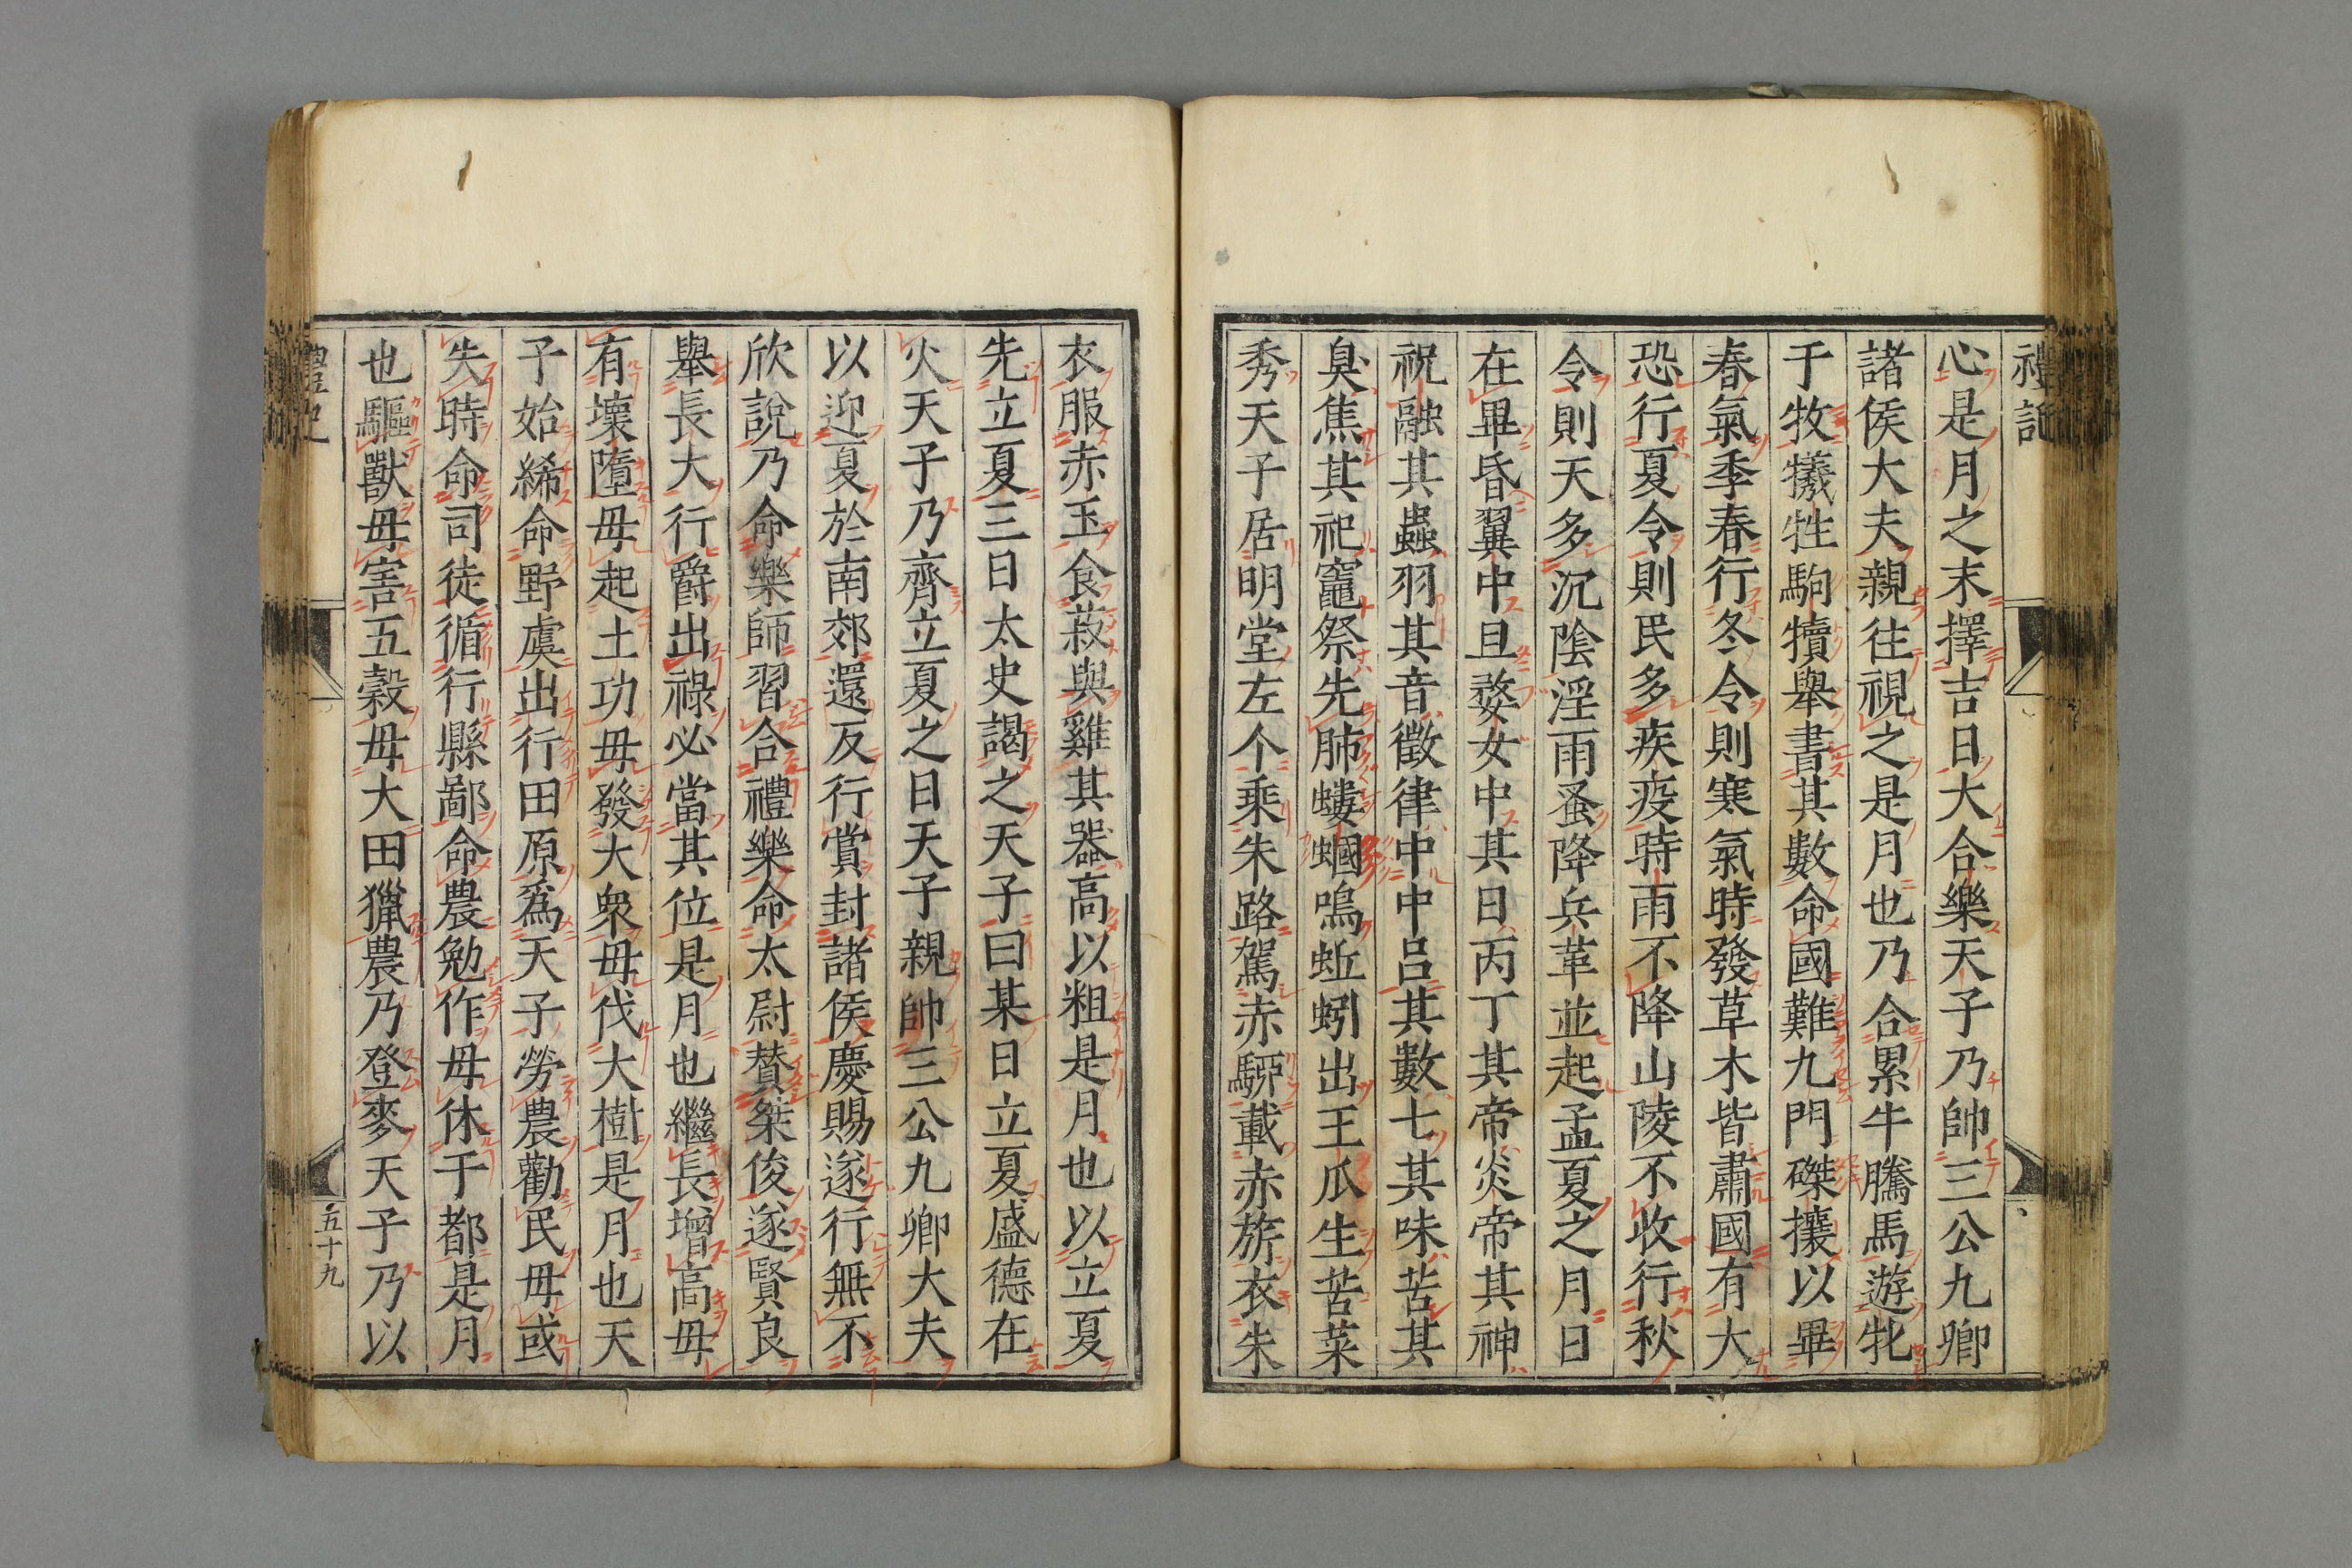 禮記
心是月之末擇吉日大合樂天子乃帥三公九卿
諸侯大夫親往視之是月也乃合累牛騰馬遊牝
于牧犧牲駒犢舉書其數命國難九門磔攘以畢
春氣季春行冬令則寒氣時發草木皆肅國有大
恐行夏令則民多疾疫時雨不降山陵不收行秋
令則天多沉陰淫雨蚤降兵革並起孟夏之月日
在畢昏翼中旦婺女中其日丙丁其帝炎帝其神
祝融其蟲羽其音徵律中中呂其數七其味苦其
臭焦其祀竈祭先肺螻蟈鳴蚯蚓出王瓜生苦菜
秀天子居明堂左个乘朱路駕赤駵載赤旂衣朱
衣服赤玉食菽與雞其器高以粗是月也以立夏
先立夏三日太史謁之天子曰某日立夏盛德在
火天子乃齊立夏之日天子親帥三公九卿大夫
以迎夏於南郊還反行賞封諸侯慶賜遂行無不
欣說乃命樂師習合禮樂命太尉贊桀俊遂賢良
舉長大行爵出祿必當其位是月也繼長增高毋
有壞墮毋起土功毋發大衆毋伐大樹是月也天
子始絺命野虞出行田原爲天子勞農勸民毋或
失時命司徒循行縣鄙命農勉作毋休于都是月
也驅獸毋害五穀毋大田獵農乃登麥天子乃以
五十九